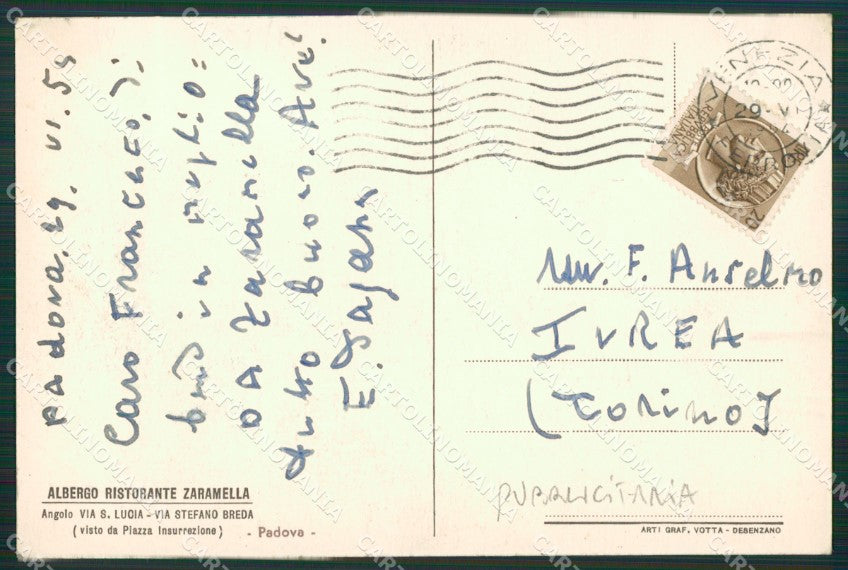 PADOVA. 29. VI. 55
Caro Francheo, ):
in meglio =
DA Zaramella
tutto buono. Ave!
E. Pagani
ALBERGO RISTORANTE ZARAMELLA
Angolo VIA S. LUCIA - VIA STEFANO BREDA
( visto da Piazza Insurrezione )
- Padova -
VENEZIA
29. VI
FERROVIA
REPUBBLICA
ITALIANA
F. Anselmo
IVREA
(Torino)
PUBBLICITARIA
ARTI GRAF. VOTTA - DESENZANO
CARTOLINOMANIA